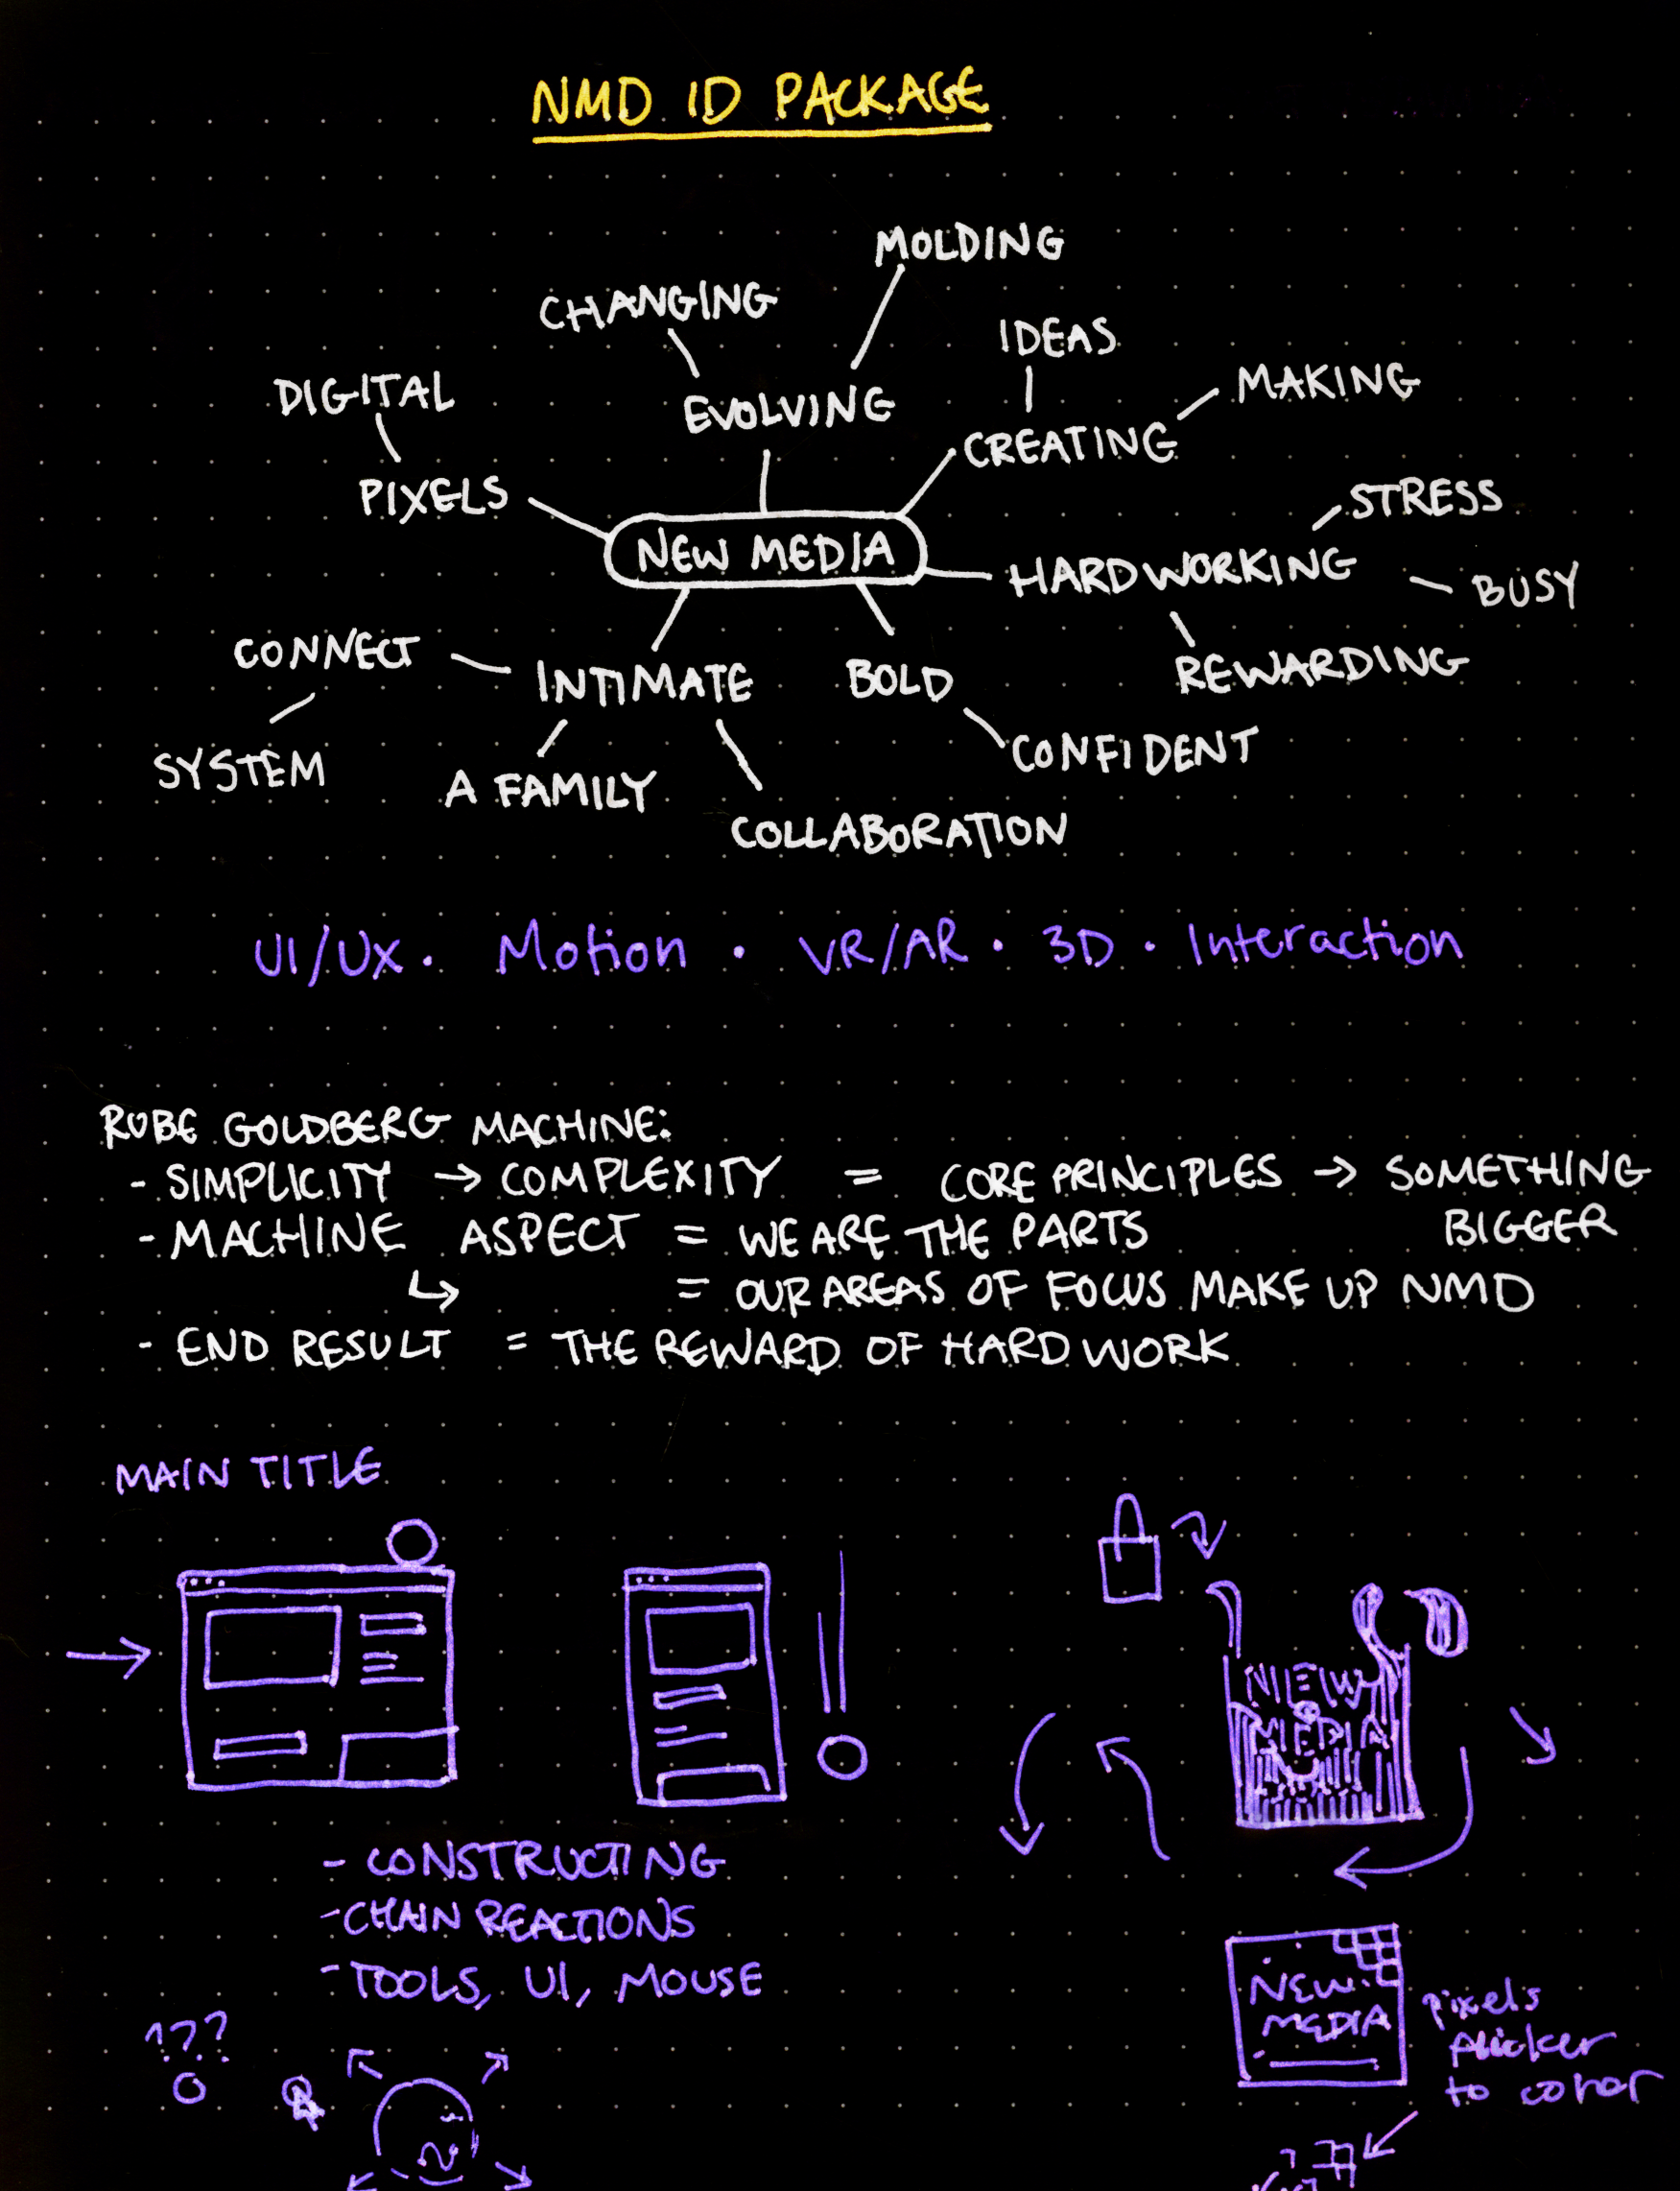 NMD ID PACKAGE
MOLDING
CHANGING
IDEAS
MAKING
DIGITAL
EVOLVING
CREATING
PIXELS
STRESS
NEW MEDIA
HARDWORKING
BUSY
CONNECT
INTIMATE
BOLD
REWARDING
SYSTEM
A FAMILY
CONFIDENT
COLLABORATION
UI/UX · Motion · VR/AR · 3D · Interaction
RUBE GOLDBERG MACHINE:
- SIMPLICITY → COMPLEXITY = CORE PRINCIPLES → SOMETHING
BIGGER
- MACHINE ASPECT = WE ARE THE PARTS
↳ = OUR AREAS OF FOCUS MAKE UP NMD
- END RESULT = THE REWARD OF HARD WORK
MAIN TITLE
NEW
MEDIA
- CONSTRUCTING
- CHAIN REACTIONS
- TOOLS, UI, MOUSE
???
NEW
MEDIA
pixels
flicker
to